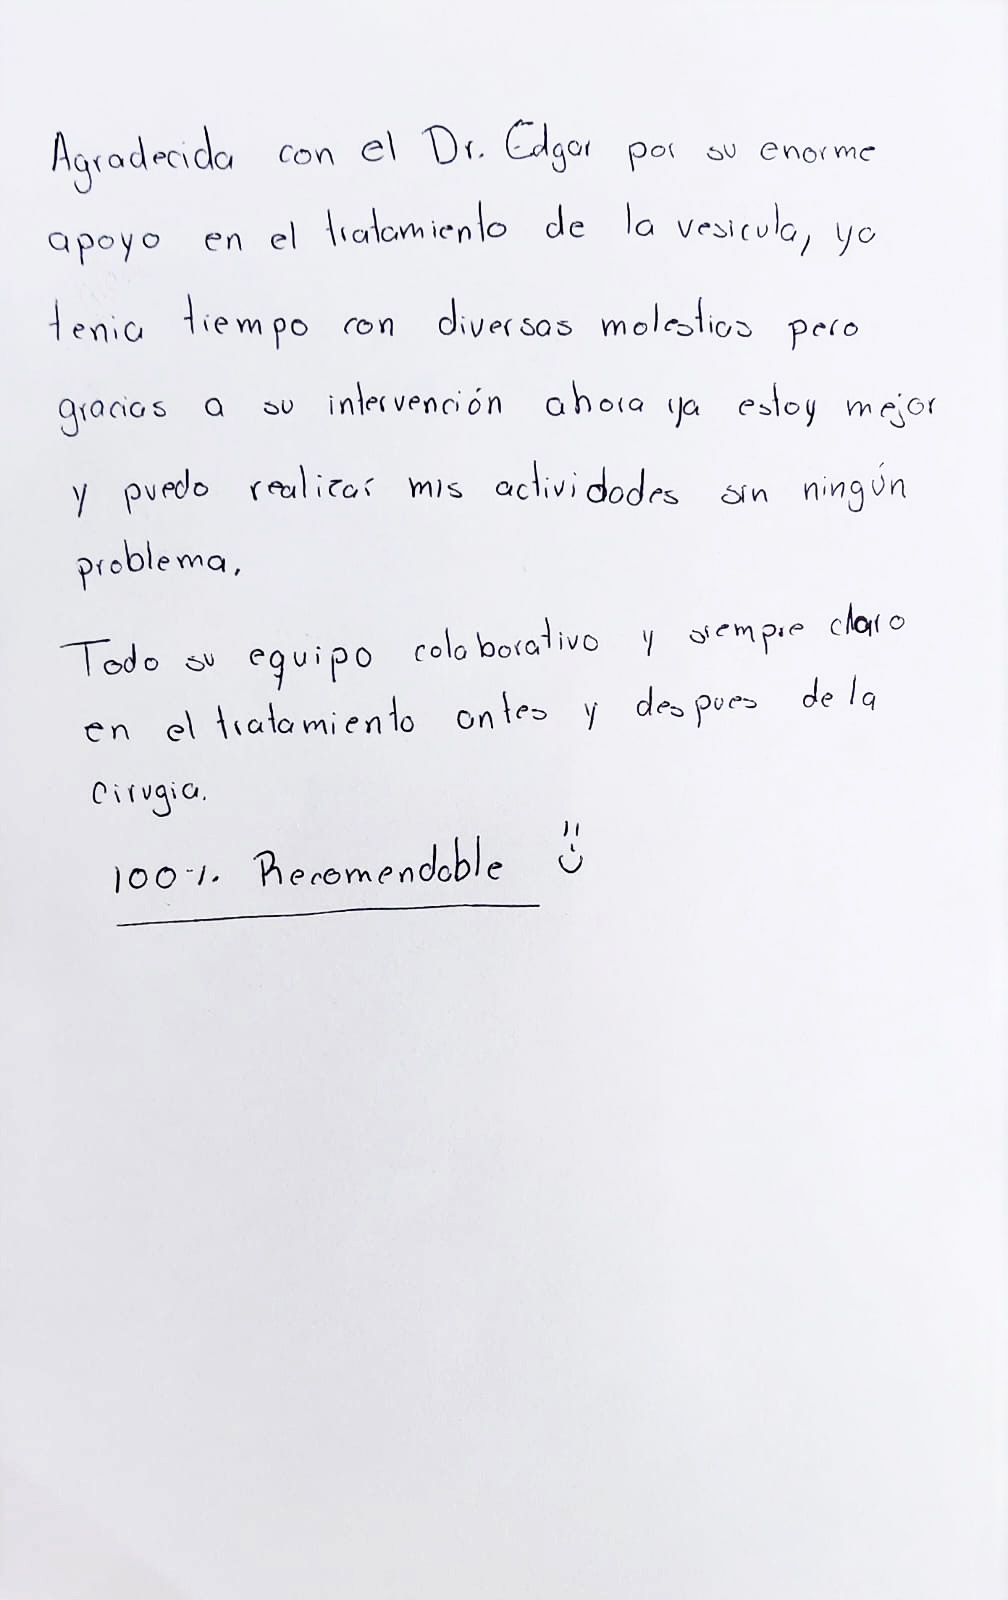 Agradecida con el Dr. Edgar por su enorme
apoyo en el tratamiento de la vesicula, ya
tenia tiempo con diversas molestias pero
gracias a su intervención ahora ya estoy mejor
y puedo realizar mis actividades sin ningún
problema.
Todo su equipo colaborativo y siempre claro
en el tratamiento antes y despues de la
cirugia.
100% Recomendable